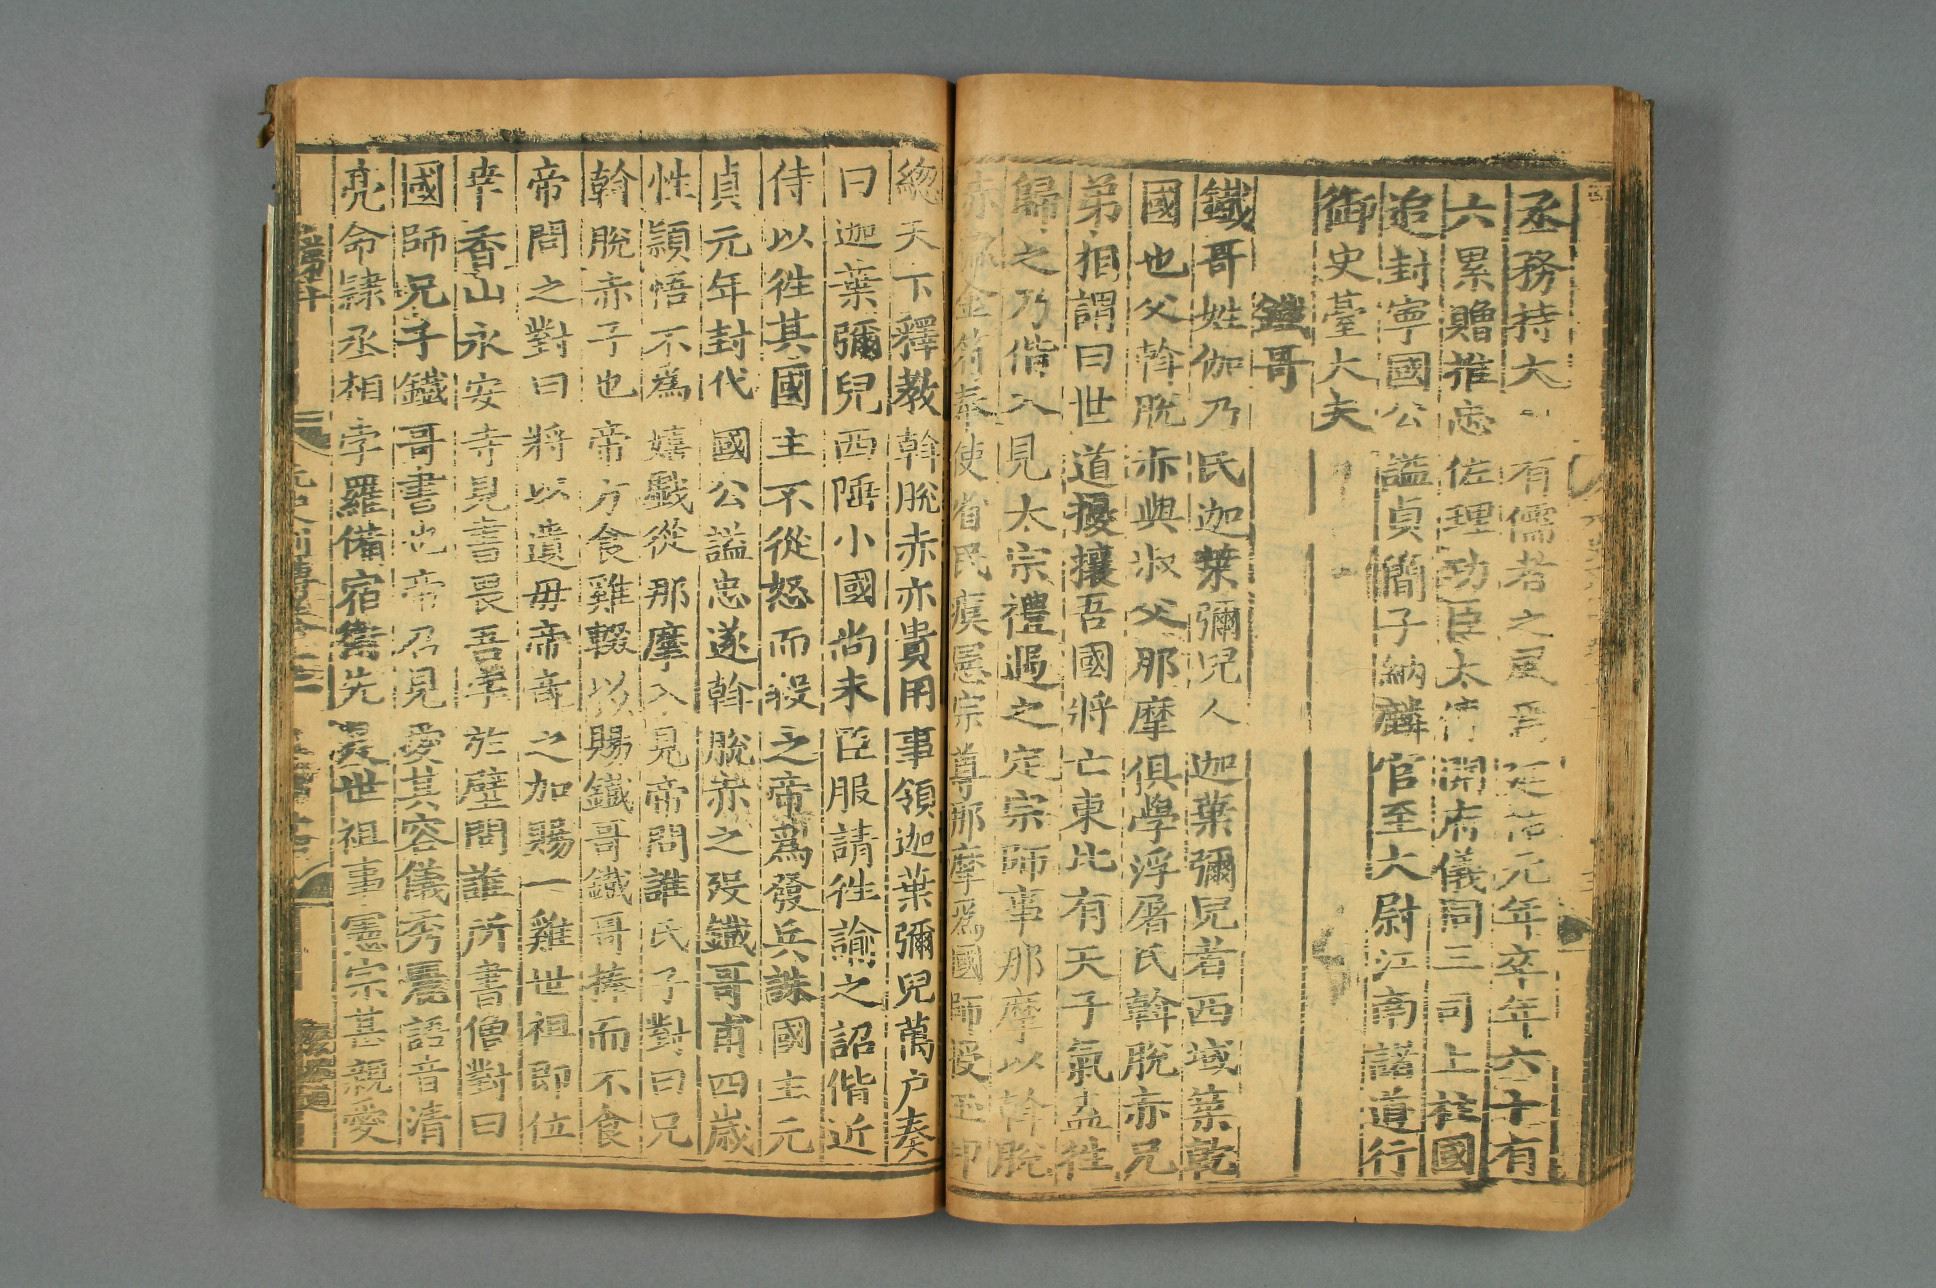 丞務持大 有儒者之風焉 延祐元年卒年六十有
六累贈推忠佐理功臣太傅開府儀同三司上柱國
追封寧國公謚貞簡子納麟官至大尉江南諸道行
御史臺大夫
鐵哥
鐵哥姓伽乃氏迦葉彌兒人迦葉彌兒者西域築乾
國也父斡脫赤與叔父那摩俱學浮屠氏斡脫赤兄
弟相謂曰世道擾攘吾國將亡東北有天子氣盍往
歸之乃偕入見太宗禮遇之定宗師事那摩以斡脫
赤佩金符奉使省民瘼憲宗尊那摩爲國師授玉印
緫天下釋教斡脫赤亦貴用事領迦葉彌兒萬户奏
曰迦葉彌兒西陲小國尚未臣服請往諭之詔偕近
侍以徃其國主不從怒而殺之帝爲發兵誅國主元
貞元年封代國公謚忠遂斡脫赤之歿鐵哥甫四歲
性頴悟不為嬉戲從那摩入見帝問誰氏子對曰兄
斡脫赤子也帝方食雞輟以賜鐵哥鐵哥捧而不食
帝問之對曰將以遺毋帝竒之加賜一雞世祖即位
幸香山永安寺見書畏吾字於壁問誰所書僧對曰
國師兄子鐵哥書也帝召見愛其容儀秀麗語音清
亮命隸丞相孛羅備宿衛先是世祖事憲宗甚親愛
元史列傳卷十二